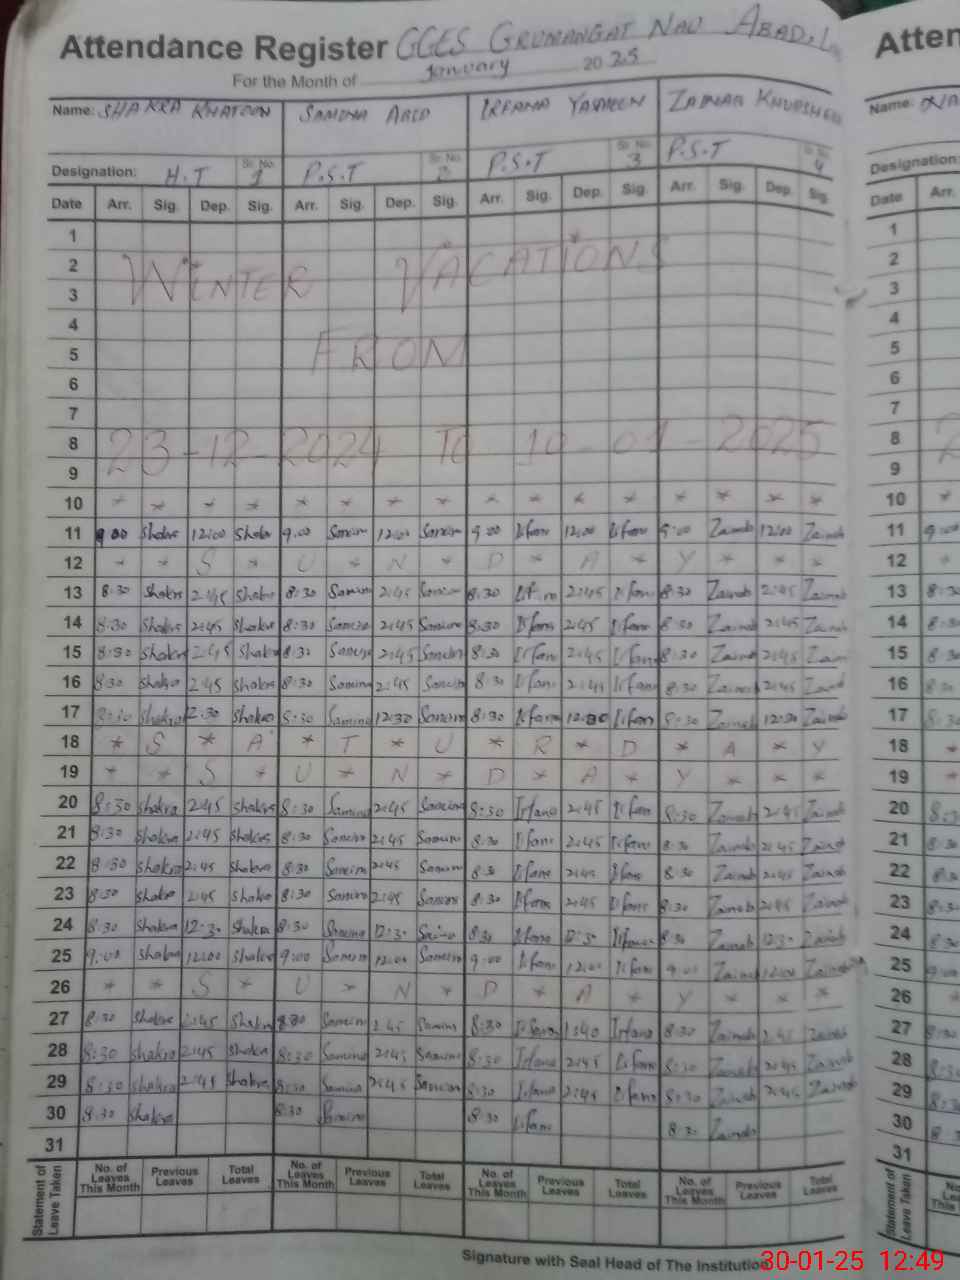 Attendance Register GGES GRUMANGAT NAU ABAD, L
For the Month of January 2025
Name: SHAKRA KHATOON SAMINA ABID IRFANA YASMEEN ZAINAB KHURSHEED
Designation: H.T Sr. No. 1 P.S.T Sr. No. 2 P.S.T Sr. No. 3 P.S.T Sr. No. 4
Date Arr. Sig. Dep. Sig. Arr. Sig. Dep. Sig. Arr. Sig. Dep. Sig. Arr. Sig. Dep. Sig.
1
2 WINTER VACATIONS
3
4
5 FROM
6
7
8 23-12-2024 TO 10-01-2025
9
10 * * * * * * * * * * * * * * * *
11 9:00 Shakra 12:00 Shakra 9:00 Samina 12:00 Samina 9:00 Irfana 12:00 Irfana 9:00 Zainab 12:00 Zainab
12 * * S * U * N * D * A * Y * * *
13 8:30 Shakra 2:45 Shakra 8:30 Samina 2:45 Samina 8:30 Irfana 2:45 Irfana 8:30 Zainab 2:45 Zainab
14 8:30 Shakra 2:45 Shakra 8:30 Samina 2:45 Samina 8:30 Irfana 2:45 Irfana 8:30 Zainab 2:45 Zainab
15 8:30 Shakra 2:45 Shakra 8:30 Samina 2:45 Samina 8:30 Irfana 2:45 Irfana 8:30 Zainab 2:45 Zainab
16 8:30 Shakra 2:45 Shakra 8:30 Samina 2:45 Samina 8:30 Irfana 2:45 Irfana 8:30 Zainab 2:45 Zainab
17 8:30 Shakra 12:30 Shakra 8:30 Samina 12:30 Samina 8:30 Irfana 12:30 Irfana 8:30 Zainab 12:30 Zainab
18 * S * A * T * U * R * D * A * Y
19 * * S * U * N * D * A * Y * * *
20 8:30 Shakra 2:45 Shakra 8:30 Samina 2:45 Samina 8:30 Irfana 2:45 Irfana 8:30 Zainab 2:45 Zainab
21 8:30 Shakra 2:45 Shakra 8:30 Samina 2:45 Samina 8:30 Irfana 2:45 Irfana 8:30 Zainab 2:45 Zainab
22 8:30 Shakra 2:45 Shakra 8:30 Samina 2:45 Samina 8:30 Irfana 2:45 Irfana 8:30 Zainab 2:45 Zainab
23 8:30 Shakra 2:45 Shakra 8:30 Samina 2:45 Samina 8:30 Irfana 2:45 Irfana 8:30 Zainab 2:45 Zainab
24 8:30 Shakra 12:30 Shakra 8:30 Samina 12:30 Samina 8:30 Irfana 12:30 Irfana 8:30 Zainab 12:30 Zainab
25 9:00 Shakra 12:00 Shakra 9:00 Samina 12:00 Samina 9:00 Irfana 12:00 Irfana 9:00 Zainab 12:00 Zainab
26 * * S * U * N * D * A * Y * * *
27 8:30 Shakra 2:45 Shakra 8:30 Samina 2:45 Samina 8:30 Irfana 1:40 Irfana 8:30 Zainab 2:45 Zainab
28 8:30 Shakra 2:45 Shakra 8:30 Samina 2:45 Samina 8:30 Irfana 2:45 Irfana 8:30 Zainab 2:45 Zainab
29 8:30 Shakra 2:45 Shakra 8:30 Samina 2:45 Samina 8:30 Irfana 2:45 Irfana 8:30 Zainab 2:45 Zainab
30 8:30 Shakra 8:30 Samina 8:30 Irfana 8:30 Zainab
31
Statement of Leave Taken
No. of Leaves This Month Previous Leaves Total Leaves No. of Leaves This Month Previous Leaves Total Leaves No. of Leaves This Month Previous Leaves Total Leaves No. of Leaves This Month Previous Leaves Total Leaves
Signature with Seal Head of The Institution
30-01-25 12:49
Atten
Name:
Designation:
Date Arr.
1
2
3
4
5
6
7
8 2
9
10 *
11 9:00
12 *
13 8:30
14 8:30
15 8:30
16 8:30
17 8:30
18 *
19 *
20 8:30
21 8:30
22 8:30
23 8:30
24 8:30
25 9:00
26 *
27 8:30
28 8:30
29 8:30
30 8:3
31
Statement of Leave Taken